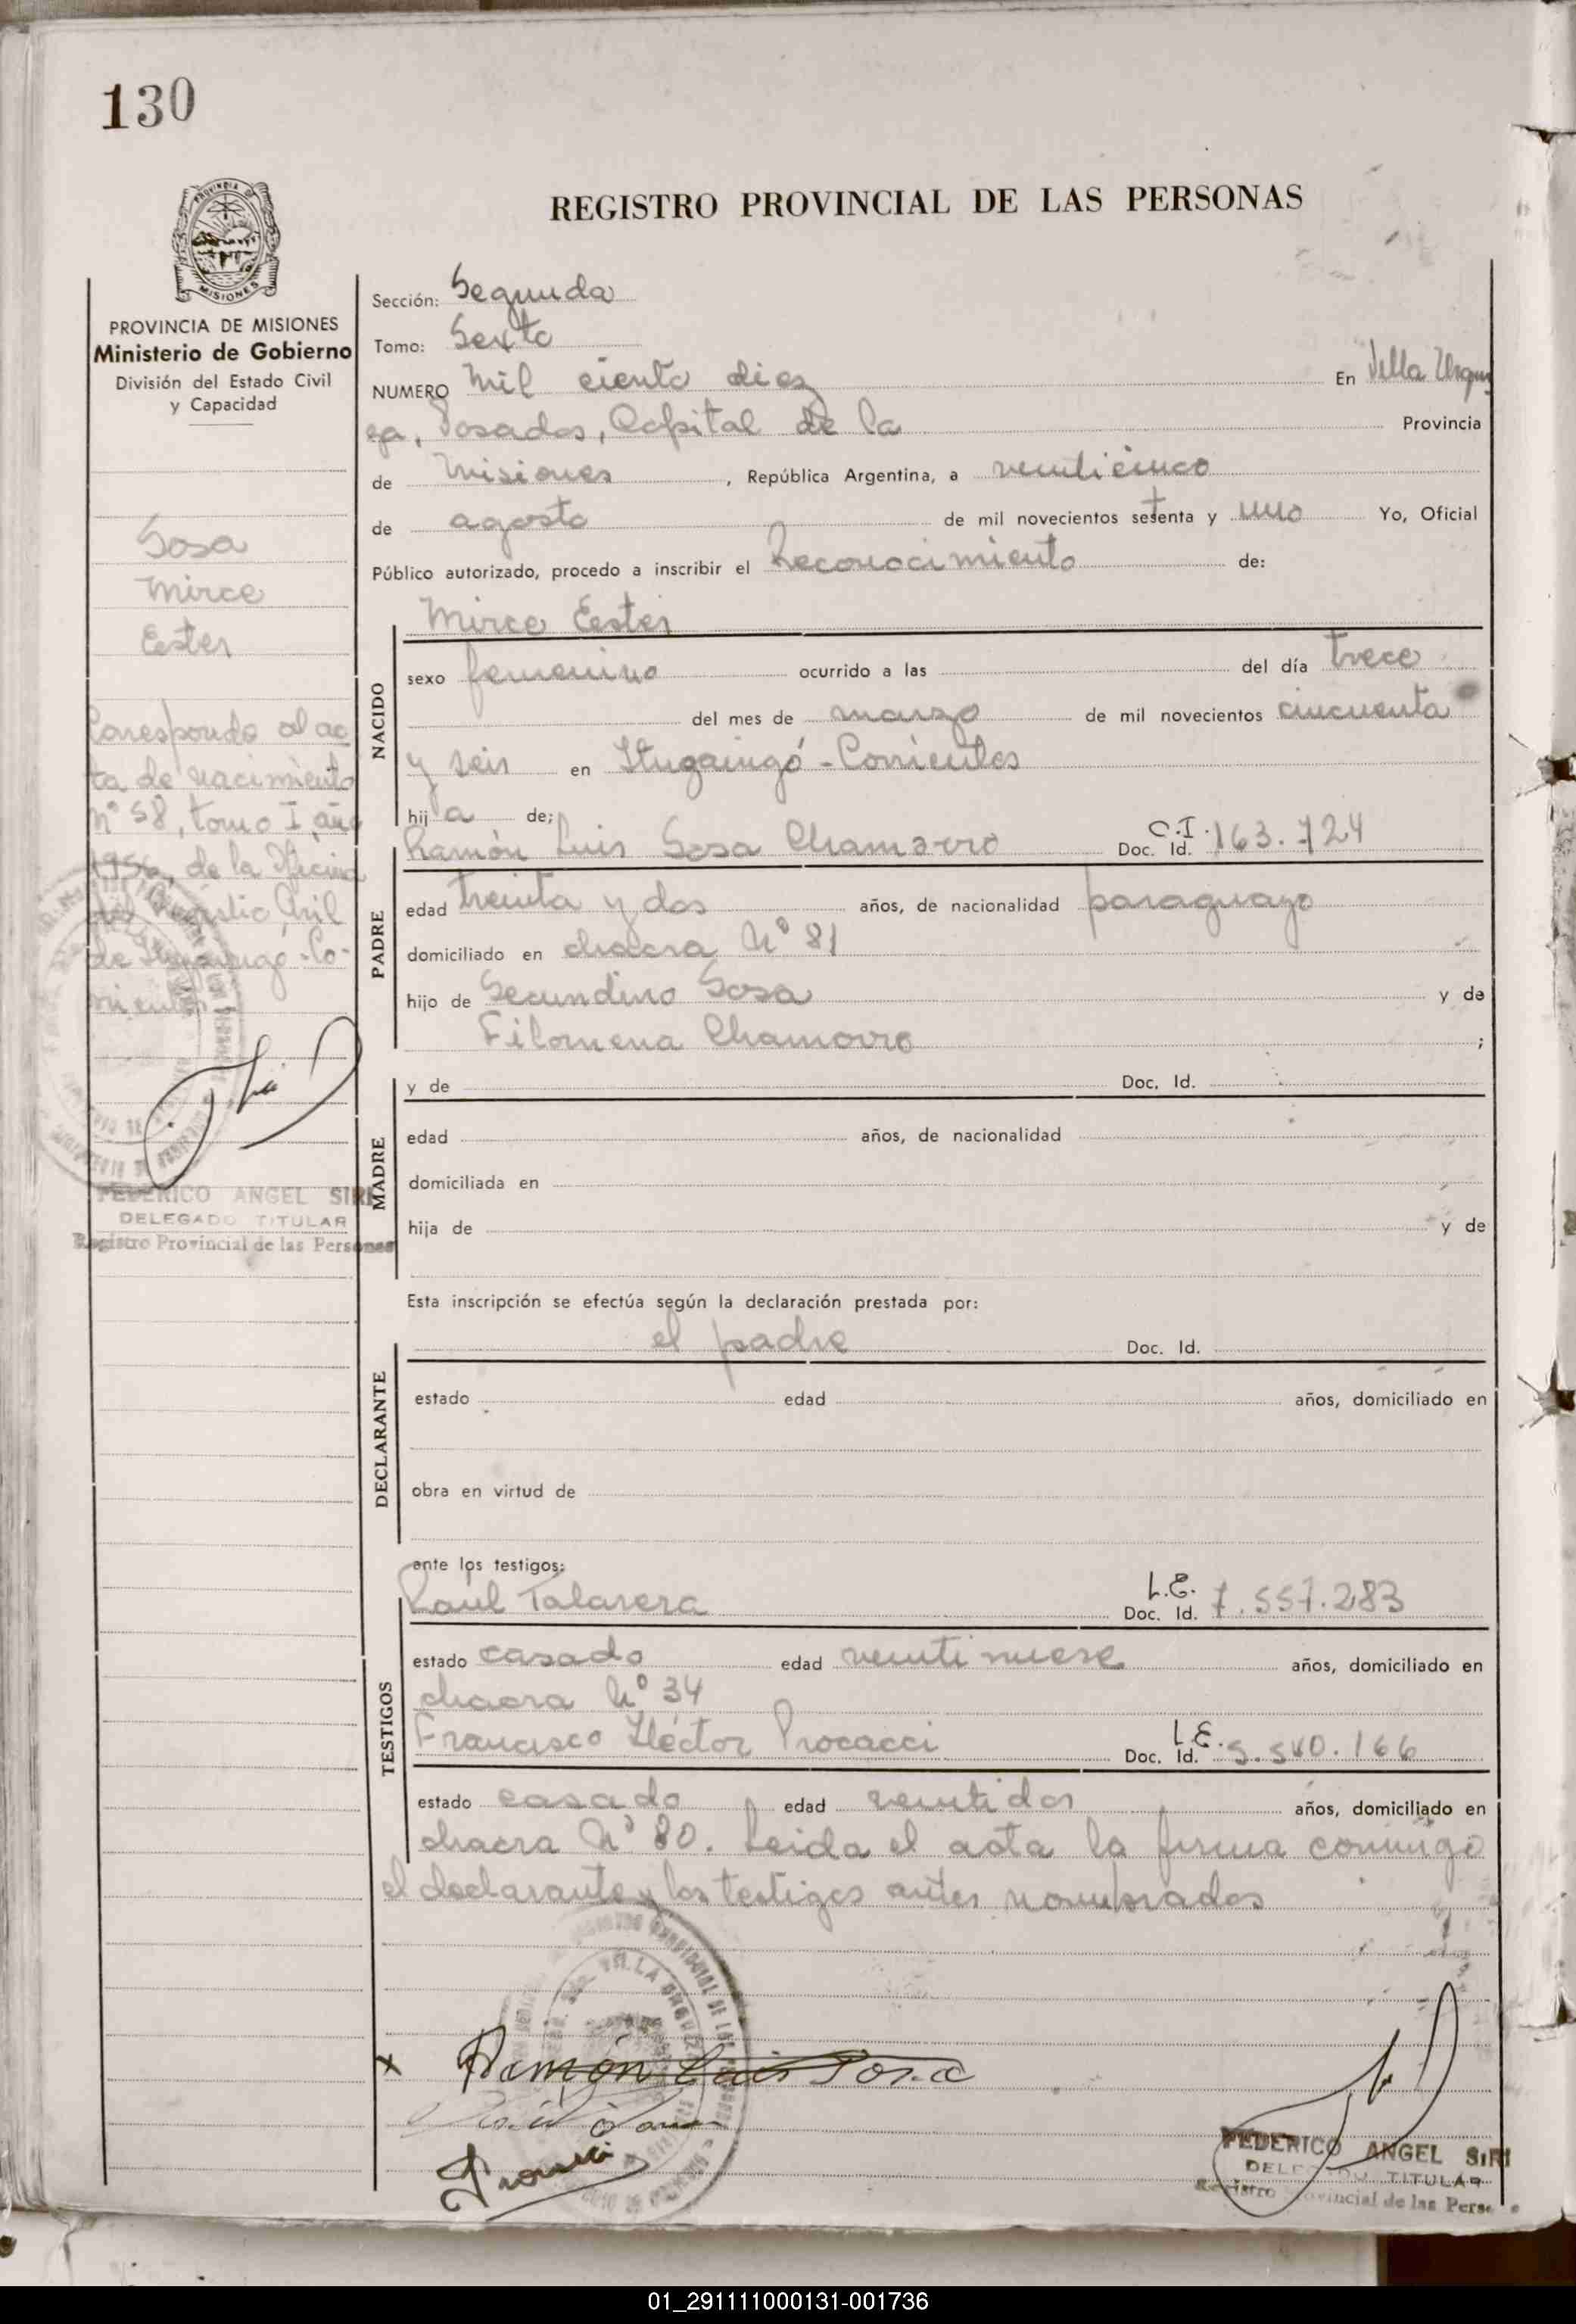 130
PROVINCIA DE
MISIONES
PROVINCIA DE MISIONES
Ministerio de Gobierno
División del Estado Civil
y Capacidad
Sosa
Mirce
Ester
Corresponde al ac
ta de nacimiento
Nº 58, tomo I, año
1956, de la Oficina
del Registro Civil
de Ituzaingó-Co-
rrientes
FEDERICO ANGEL SIRI
DELEGADO TITULAR
Registro Provincial de las Personas
REGISTRO PROVINCIAL DE LAS PERSONAS
Sección: Segunda
Tomo: Sexto
NUMERO Mil ciento diez En Villa Urqui
za, Posadas, Capital de la Provincia
de Misiones, República Argentina, a veinticinco
de agosto de mil novecientos setenta y uno Yo, Oficial
Público autorizado, procedo a inscribir el Reconocimiento de:
NACIDO
Mirce Ester
sexo femenino ocurrido a las del día trece
del mes de marzo de mil novecientos cincuenta
y seis en Ituzaingó-Corrientes
hija de;
PADRE
Ramón Luis Sosa Chamorro C.I. Doc. Id. 163.724
edad treinta y dos años, de nacionalidad paraguayo
domiciliado en chacra Nº 81
hijo de Secundino Sosa y de
Filomena Chamorro ;
MADRE
y de Doc. Id.
edad años, de nacionalidad
domiciliada en
hija de y de
Esta inscripción se efectúa según la declaración prestada por:
DECLARANTE
el padre Doc. Id.
estado edad años, domiciliado en
obra en virtud de
ante los testigos:
TESTIGOS
Raúl Talavera L.E. Doc. Id. 7.557.283
estado casado edad veintinueve años, domiciliado en
chacra Nº 34
Francisco Héctor Procacci L.E. Doc. Id. 5.540.166
estado casado edad veintidos años, domiciliado en
chacra Nº 80. Leida el acta la firma conmigo
el declarante y los testigos antes nombrados
VILLA URQUIZA
x Ramón Luis Sosa
FEDERICO ANGEL SIRI
DELEGADO TITULAR
Registro Provincial de las Perso
01_291111000131-001736